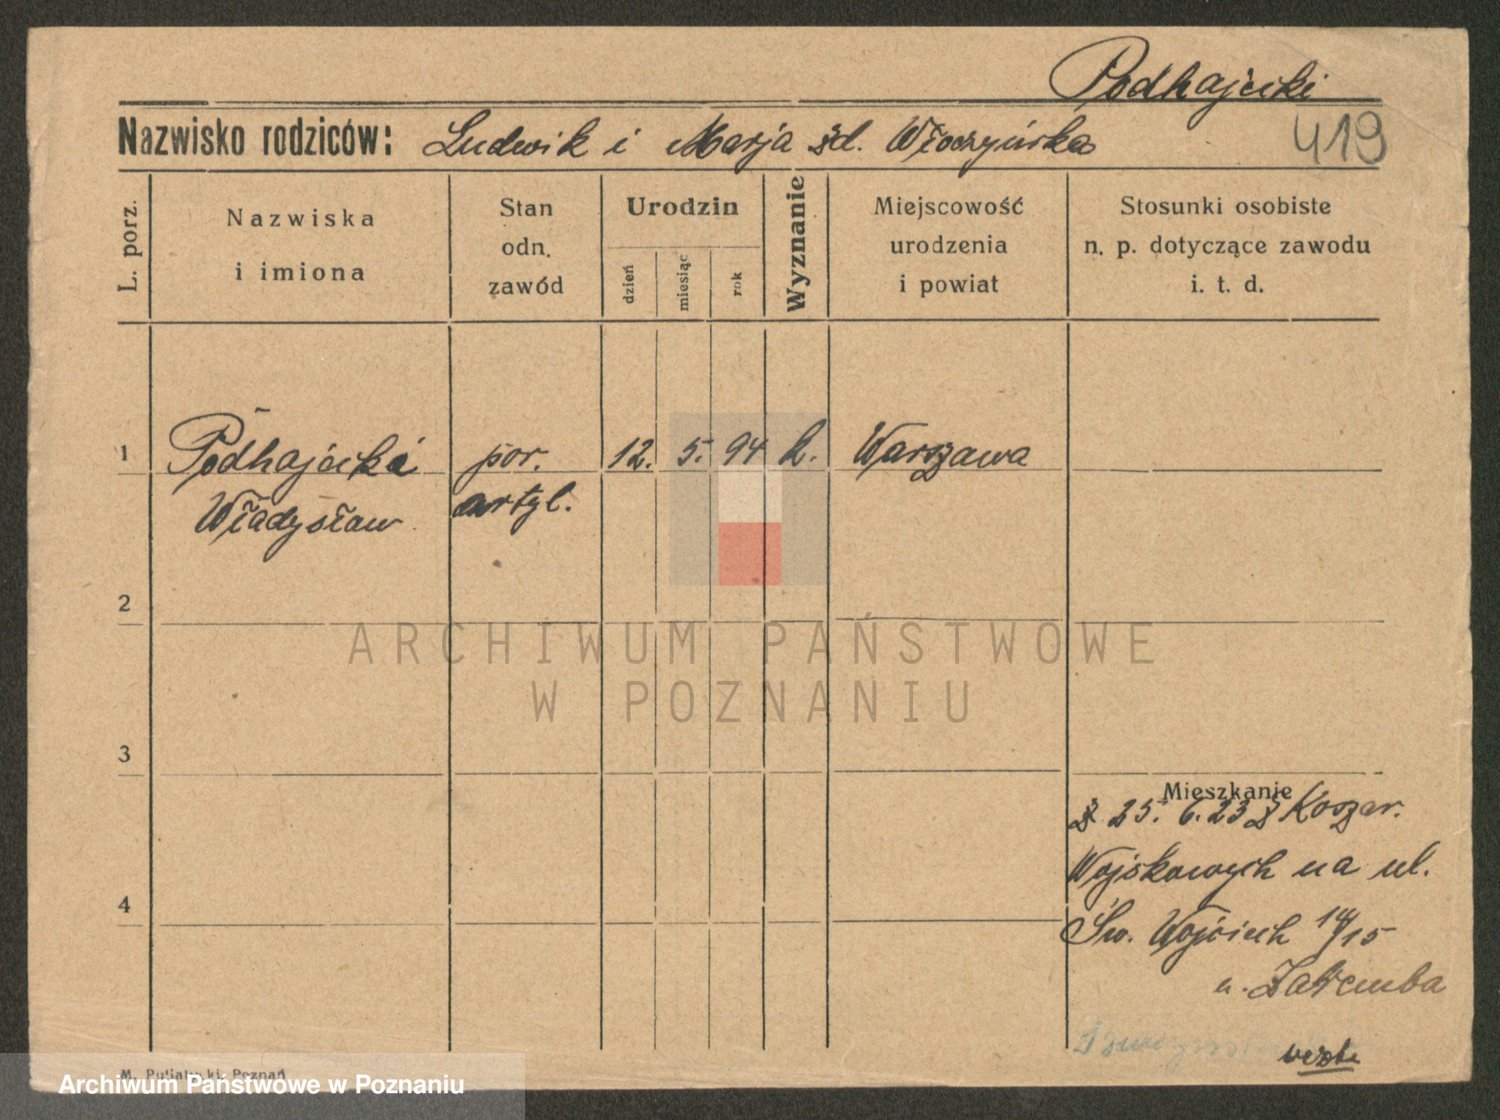 Podhajecki
Nazwisko rodziców: Ludwik i Marja żd. Włoczyńska
419
L. porz.
Nazwiska
i imiona
Stan
odn.
zawód
Urodzin
dzień
miesiąc
rok
Wyznanie
Miejscowość
urodzenia
i powiat
Stosunki osobiste
n. p. dotyczące zawodu
i. t. d.
1
Podhajecki por. 12. 5. 94 k. Warszawa
Władysław artyl.
2
ARCHIWUM PAŃSTWOWE
W POZNANIU
3
Mieszkanie
25. 6. 23 z Koszar.
Wojskowych na ul.
4
Św. Wojciech 14/15
u. Zaremba
M. Putiatycki, Poznań
Archiwum Państwowe w Poznaniu